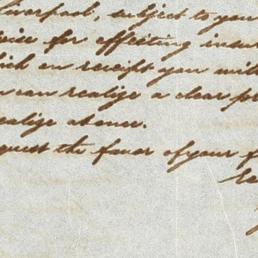 Liverpool, subject to you
for effecting insu
on receipt you will
can realize a clear
realize at once.
quest the favor of your f